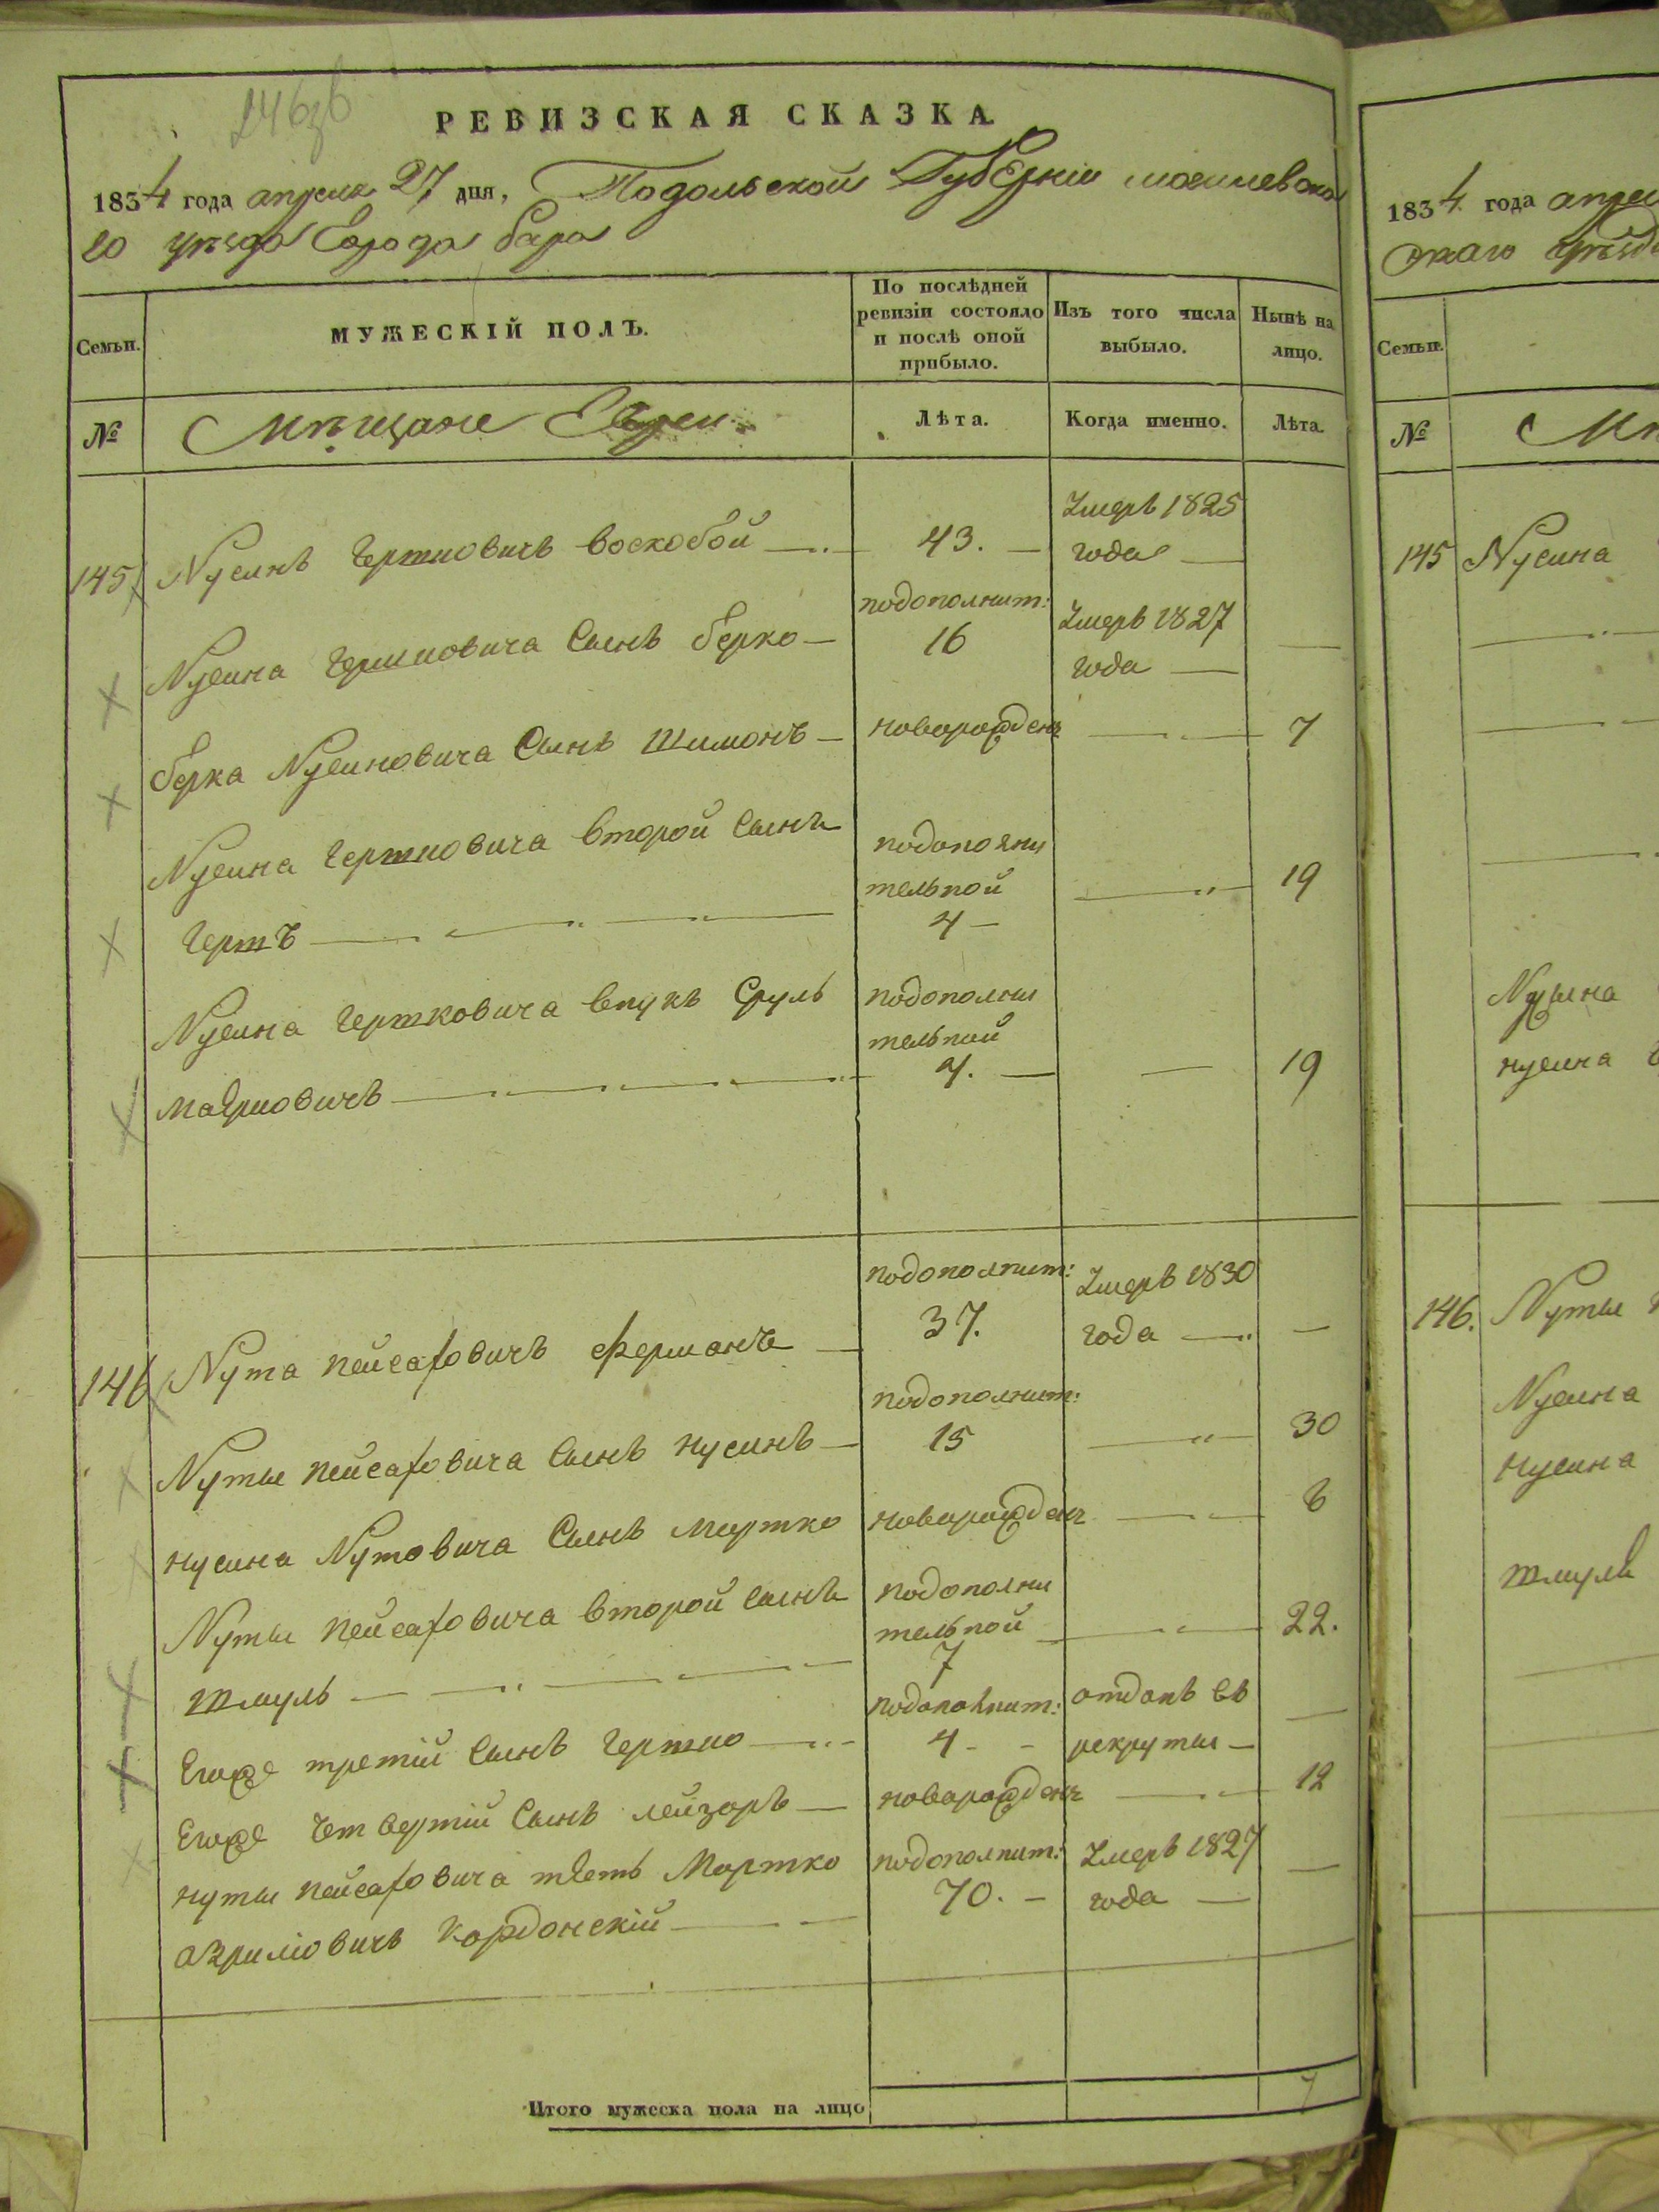 246зв
РЕВИЗСКАЯ СКАЗКА.
1834 года апреля 27 дня, Подольской Губернiи могилевска
го уѣзда Города бара
Семьи.
МУЖЕСКІЙ ПОЛЪ.
По послѣдней ревизіи состояло и послѣ оной прибыло.
Изъ того числа выбыло.
Нынѣ на лицо.
№
Мѣщане Евреи
Лѣта.
Когда именно.
Лѣта.
145 Нусинъ Гершковичъ воскобой 43. Умеръ 1825
года
Нусина Гершковича Сынъ берко подополнит: 16 Умеръ 1827
года
берка Нусиновича Сынъ Шимонъ новорожден 7
Нусина Гершковича второй Сынъ подополни
тельной 4 19
Гершъ
Нусина Гершковича внукъ Сруль подополни
тельной 4. 19
маерковичъ
146 Нута пейсаховичъ ферманъ подополнит: 37. Умеръ 1830
года
Нуты пейсаховича Сынъ нусинъ подополнит: 15 30
нусина Нутовича Сынъ мортко новорожден 6
Нуты пейсаховича второй Сынъ подополни
тельной 7 22.
шмуль
Егоже третiй Сынъ Гершко подополнит: 4 отданъ въ
рекруты
Егоже Четвертiй Сынъ лейзоръ новорожден 12
нуты пейсаховича тесть Мортко подополнит: 70. Умеръ 1827
года
Кордонскiй
Итого мужеска пола на лицо 7
1834 года апрел
скаго уѣзд
Семьи.
№
Мѣ
145 Нусина
Нусина
нусина
146. Нуты
Нусина
нусина
шмуля